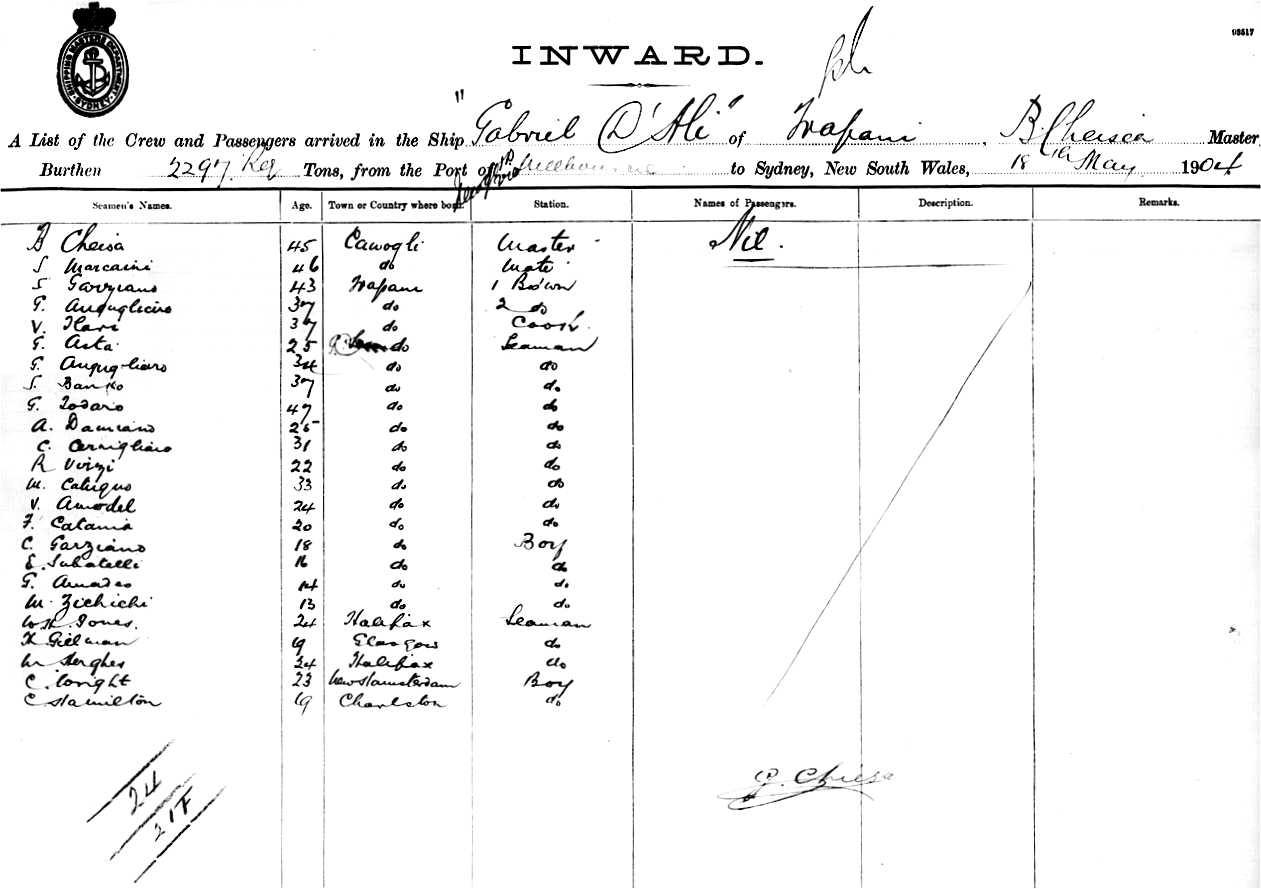 03517
SHIPPING MASTERS DEPARTMENT SYDNEY
INWARD.
A List of the Crew and Passengers arrived in the Ship "Gabriel D'Ali" of Trapani, B. Cheisa Master
Burthen 2297 Reg Tons, from the Port of Melbourne to Sydney, New South Wales, 18th May 1904
Seamen's Names. Age. Town or Country where born. Station. Names of Passengers. Description. Remarks.
B Cheisa 45 Camogli Master Nil.
S Marcaini 46 do Mate
S Garziano 43 Trapani 1 Bo'wn
G. Angugliaro 37 do 2 do
V. Ilari 37 do Cook
G. Asta 25 do Seaman
G. Angugliaro 34 do do
S. Banko 37 do do
G. Todaro 47 do do
A. Damiano 25 do do
C. Cernigliaro 31 do do
R Virzi 22 do do
M. 33 do do
V. Amodel 24 do do
F. Catania 20 do do
C. Garziano 18 do Boy
E. Sabatelli 16 do do
G. Amadeo 14 do do
M. Zichichi 13 do do
W H. Jones. 24 Halifax Seaman
H. Gillman 19 Glasgow do
W Herghes 24 Halifax do
C. Wright 23 New Hamsterdam Boy
C Hamilton 19 Charlston do
G. Chiesa
24
21F